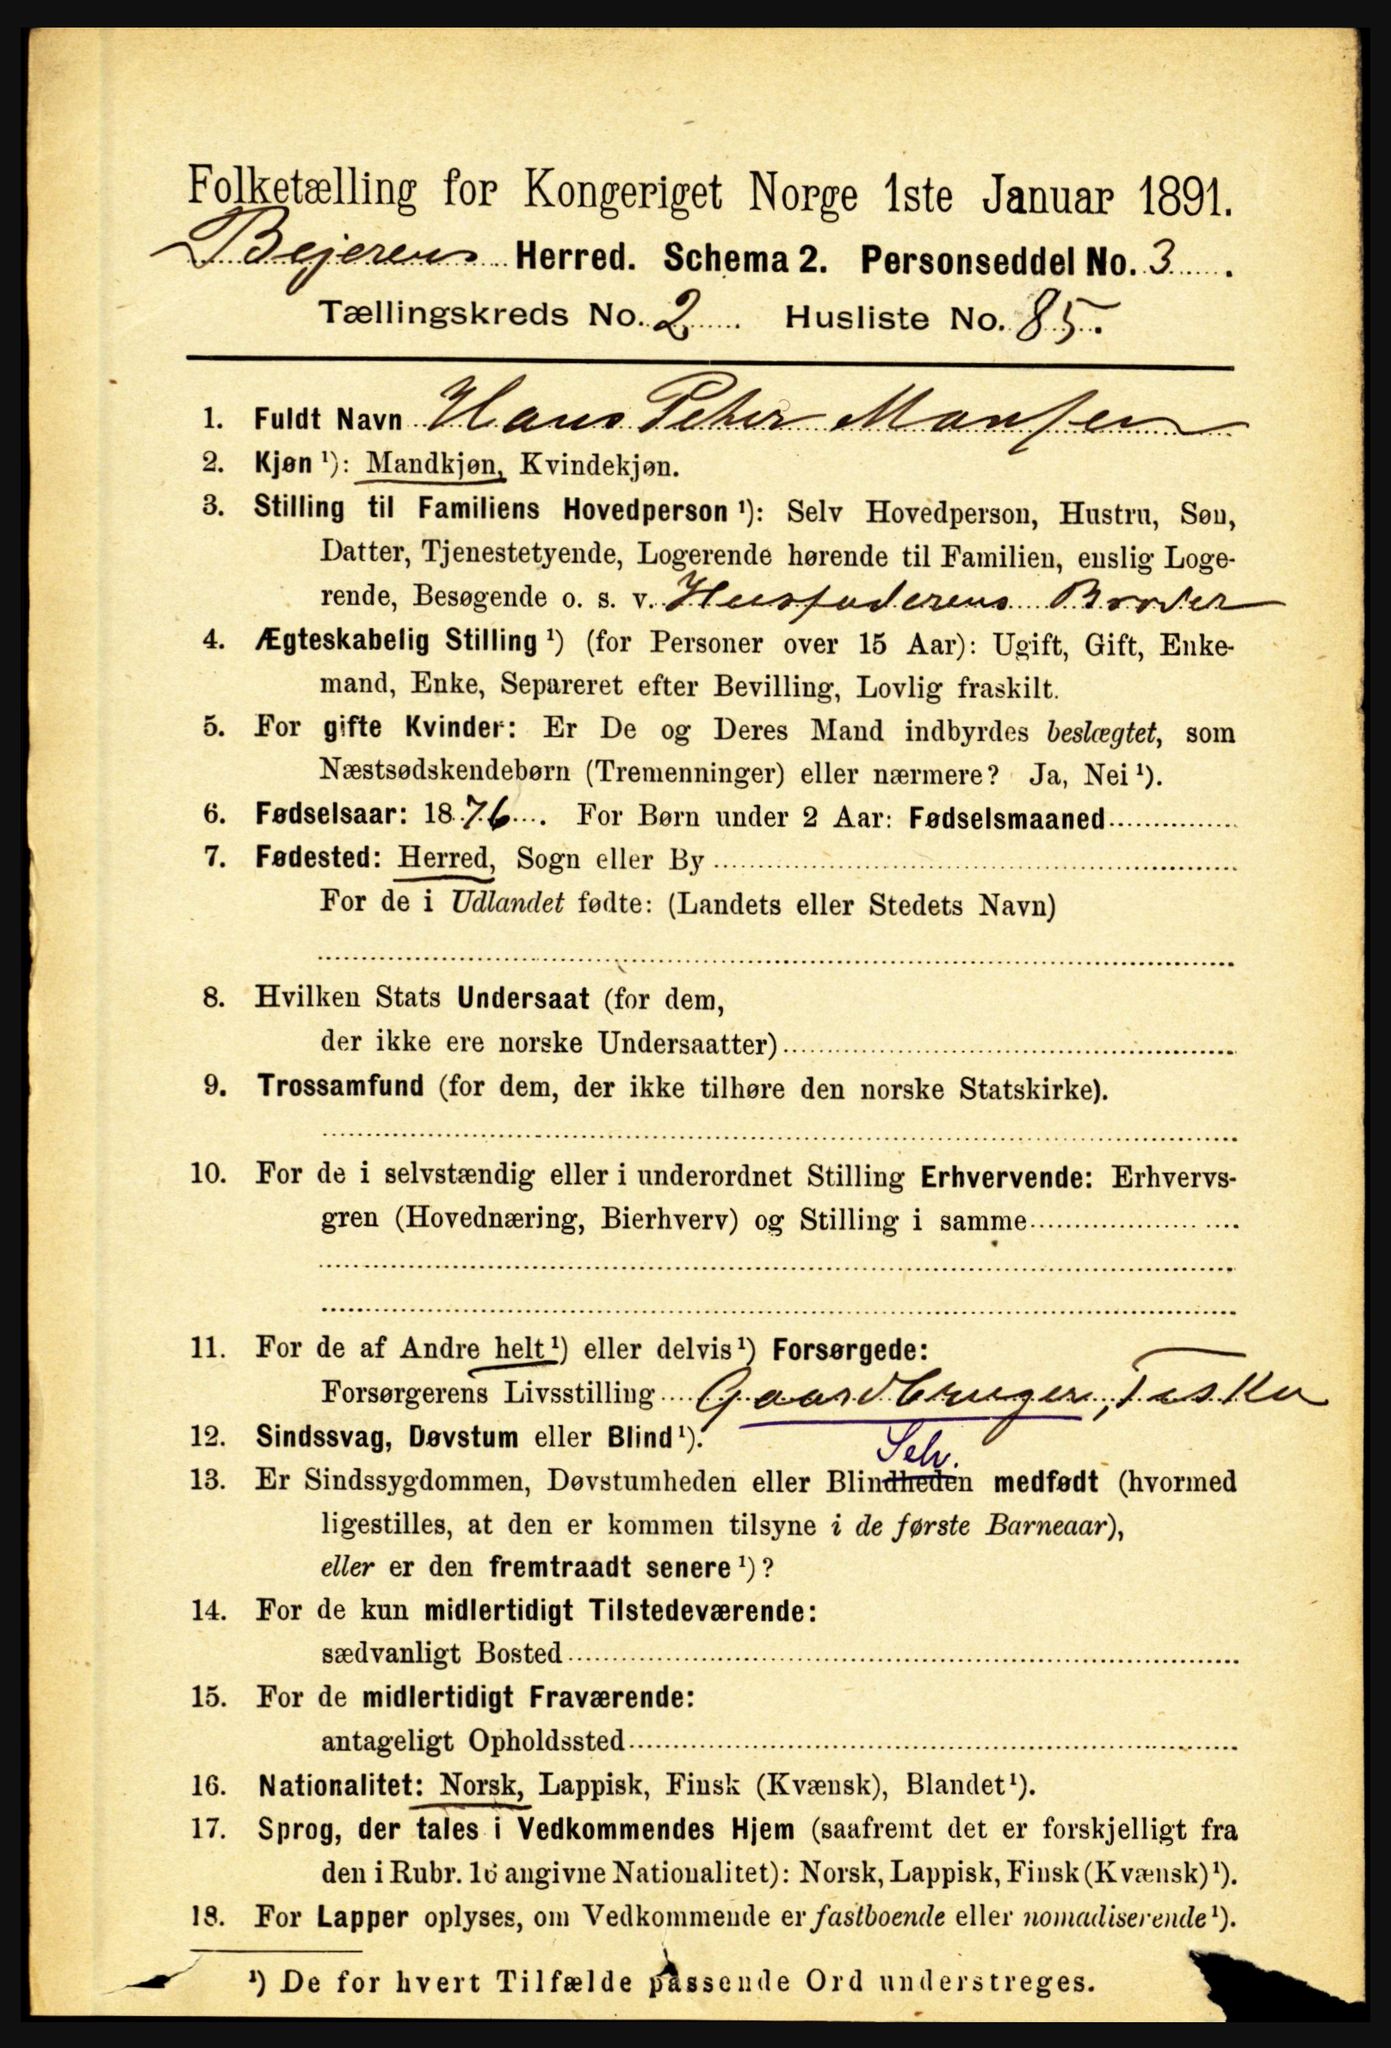 Folketælling for Kongeriget Norge 1ste Januar 1891.
Bejeren Herred. Schema 2. Personseddel No. 3.
Tællingskreds No. 2. Husliste No. 85.
1. Fuldt Navn Hans Peter Monsen
2. Kjøn ¹): Mandkjøn, Kvindekjøn.
3. Stilling til Familiens Hovedperson ¹): Selv Hovedperson, Hustru, Søn,
Datter, Tjenestetyende, Logerende hørende til Familien, enslig Loge-
rende, Besøgende o. s. v. Husfaderens Broder
4. Ægteskabelig Stilling ¹) (for Personer over 15 Aar): Ugift, Gift, Enke-
mand, Enke, Separeret efter Bevilling, Lovlig fraskilt.
5. For gifte Kvinder: Er De og Deres Mand indbyrdes beslægtet, som
Næstsødskendebørn (Tremenninger) eller nærmere? Ja, Nei ¹).
6. Fødselsaar: 1876. For Børn under 2 Aar: Fødselsmaaned
7. Fødested: Herred, Sogn eller By
For de i Udlandet fødte: (Landets eller Stedets Navn)
8. Hvilken Stats Undersaat (for dem,
der ikke ere norske Undersaatter)
9. Trossamfund (for dem, der ikke tilhøre den norske Statskirke).
10. For de i selvstændig eller i underordnet Stilling Erhvervende: Erhvervs-
gren (Hovednæring, Bierhverv) og Stilling i samme
11. For de af Andre helt ¹) eller delvis ¹) Forsørgede:
Forsørgerens Livsstilling Gaardbruger, Fisker
12. Sindssvag, Døvstum eller Blind ¹).
Selv.
13. Er Sindssygdommen, Døvstumheden eller Blindheden medfødt (hvormed
ligestilles, at den er kommen tilsyne i de første Barneaar),
eller er den fremtraadt senere ¹)?
14. For de kun midlertidigt Tilstedeværende:
sædvanligt Bosted
15. For de midlertidigt Fraværende:
antageligt Opholdssted
16. Nationalitet: Norsk, Lappisk, Finsk (Kvænsk), Blandet ¹).
17. Sprog, der tales i Vedkommendes Hjem (saafremt det er forskjelligt fra
den i Rubr. 16 angivne Nationalitet): Norsk, Lappisk, Finsk (Kvænsk) ¹).
18. For Lapper oplyses, om Vedkommende er fastboende eller nomadiserende ¹).
¹) De for hvert Tilfælde passende Ord understreges.